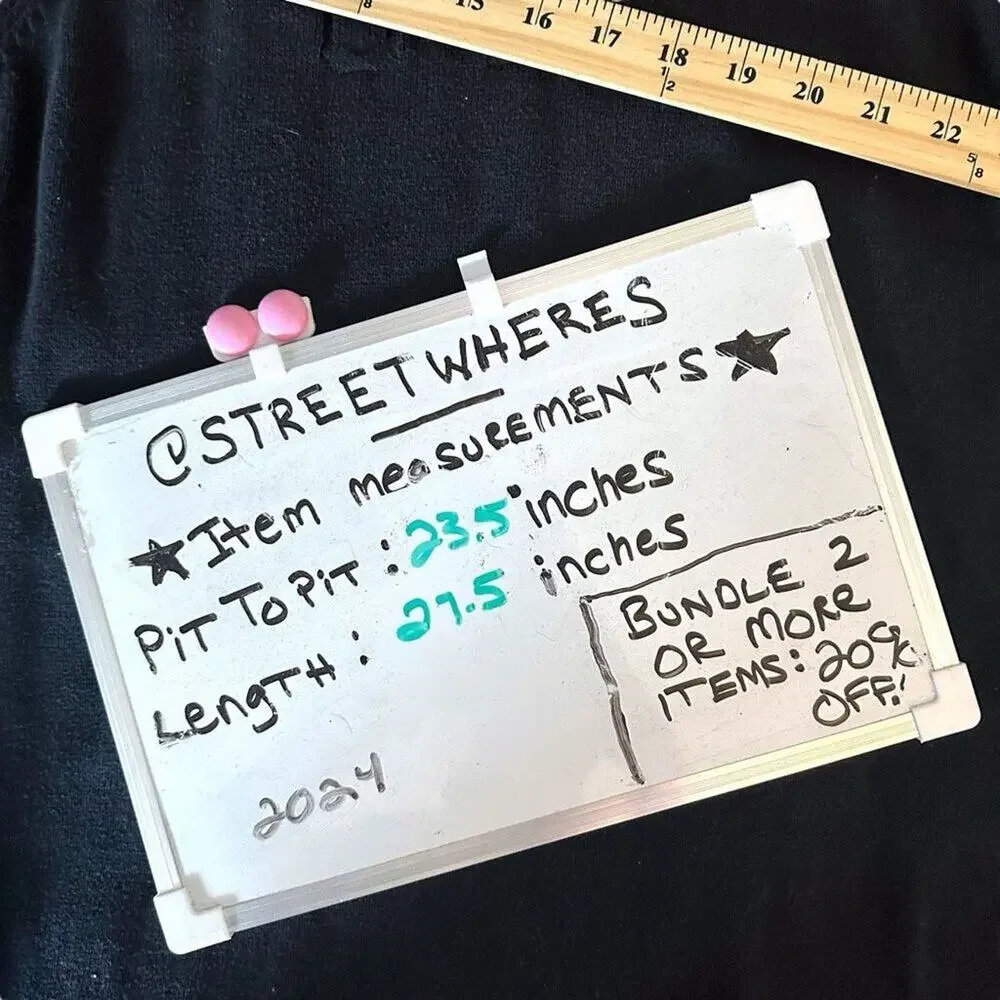 15 16 17 18 19 20 21 22
8 1/2 5/8
@STREETWHERES
★Item meaSUREMENTS★
PiT To PiT : 23.5 inches
LengTH : 27.5 inches
BUNDLE 2
OR MORE
ITEMS: 20%
OFF!
2024